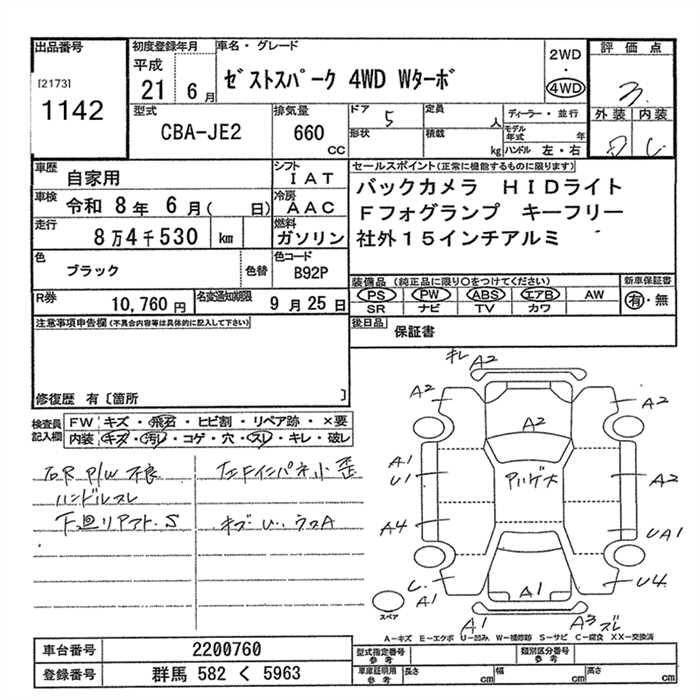 出品番号
[2173]
1142
初度登録年月
平成
21 6月
車名・グレード
ゼストスパーク 4WD Wターボ
2WD
・
4WD
評価点
3
外装 内装
D C
型式
CBA-JE2
排気量
660
CC
ドア 5
形状
定員
人
積載
kg
ディーラー・並行
モデル年式 年
ハンドル 左・右
車歴
自家用
シフト
IAT
車検
令和 8年 6月( 日)
冷房
AAC
走行
8万4千530 km
燃料
ガソリン
色
ブラック
色替
色コード
B92P
R券
10,760円
名変通知期限
9月25日
セールスポイント(正常に機能するものに限ります)
バックカメラ HIDライト
Fフォグランプ キーフリー
社外15インチアルミ
装備品 (純正品に限り○をつけてください)
PS PW ABS エアB AW
SR ナビ TV カワ
新車保証書
有・無
後日品
保証書
注意事項申告欄(不具合内容等は具体的に記入して下さい)
修復歴 有〔箇所 〕
検査員記入欄
FW キズ・飛石・ヒビ割・リペア跡・×要
内装 キズ・汚レ・コゲ・穴・スレ・キレ・破レ
右R P/W 不良
ハンドルスレ
下廻リアフト.S
左Fインパネ小歪
キズ U.. ウスA
キレ A2
A2
A2
A2
A1
U1
A2
A4
UA1
A1
U4
A1
A1
A3 ズレ
スペア
A-キズ E-エクボ U-凹み W-補修跡 S-サビ C-腐食 XX-交換済
車台番号
2200760
登録番号
群馬 582 く 5963
型式指定番号
参考
類別区分番号
参考
車庫証明用
参考
長さ cm
幅 cm
高さ cm